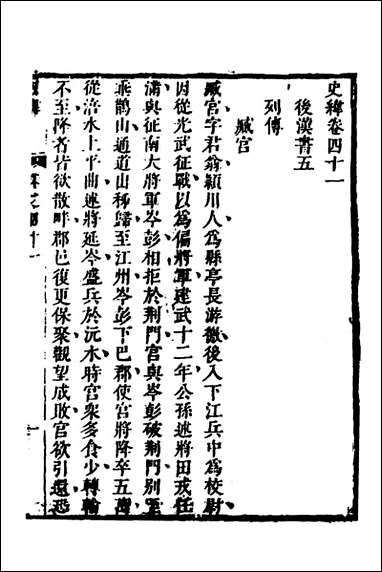 史緯卷四十一
後漢書五
列傳
臧宮
臧宮字君翁潁川人為縣亭長游徼後入下江兵中為校尉
因從光武征戰以為偏將軍建武十二年公孫述將田戎任
滿與征南大將軍岑彭相拒於荆門宮與岑彭破荆門別至
乘鵲山通道出秭歸至江州岑彭下巴郡使宮將降卒五萬
從涪水上平曲述將延岑盛兵於沅水時宮衆多食少轉輸
不至降者皆欲散畔郡邑復更保聚觀望成敗宮欲引還恐